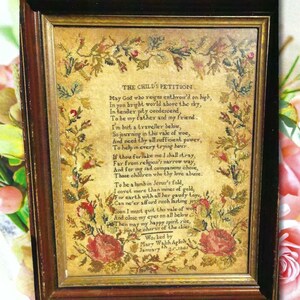 THE CHILD'S PETITION
May God who reigns enthron'd on high,
In yon bright world above the sky,
In tender pity condescend,
To be my father and my friend.
I'm but a traveller below,
So journeying in the vale of woe,
And need thy all sufficient power,
To help in every trying hour.
If thou forsake me I shall stray,
Far from religion's narrow way,
And for my companions chuse,
Those children who thy love abuse.
To be a lamb in Jesus's fold,
I covet more than mines of gold,
For earth with all her gaudy toys,
Can ne'er afford such lasting joys.
Soon I must quit the vale of woe,
And close my eyes on all below
Then may my happy spirit rise,
Worked by
Mary Webb
January